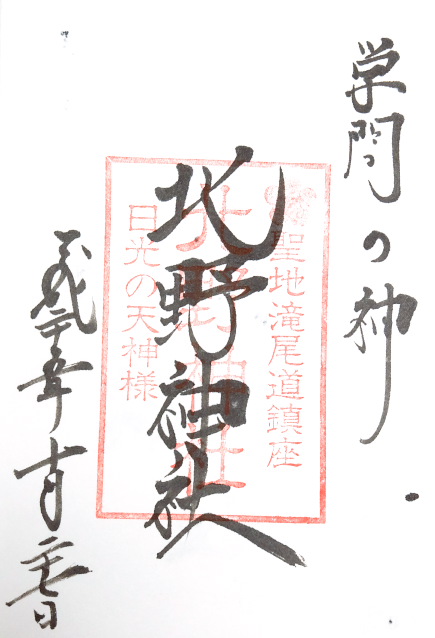 学問の神
聖地滝尾道鎮座
北野神社
北野神社
日光の天神様
平成二十五年十月二十七日